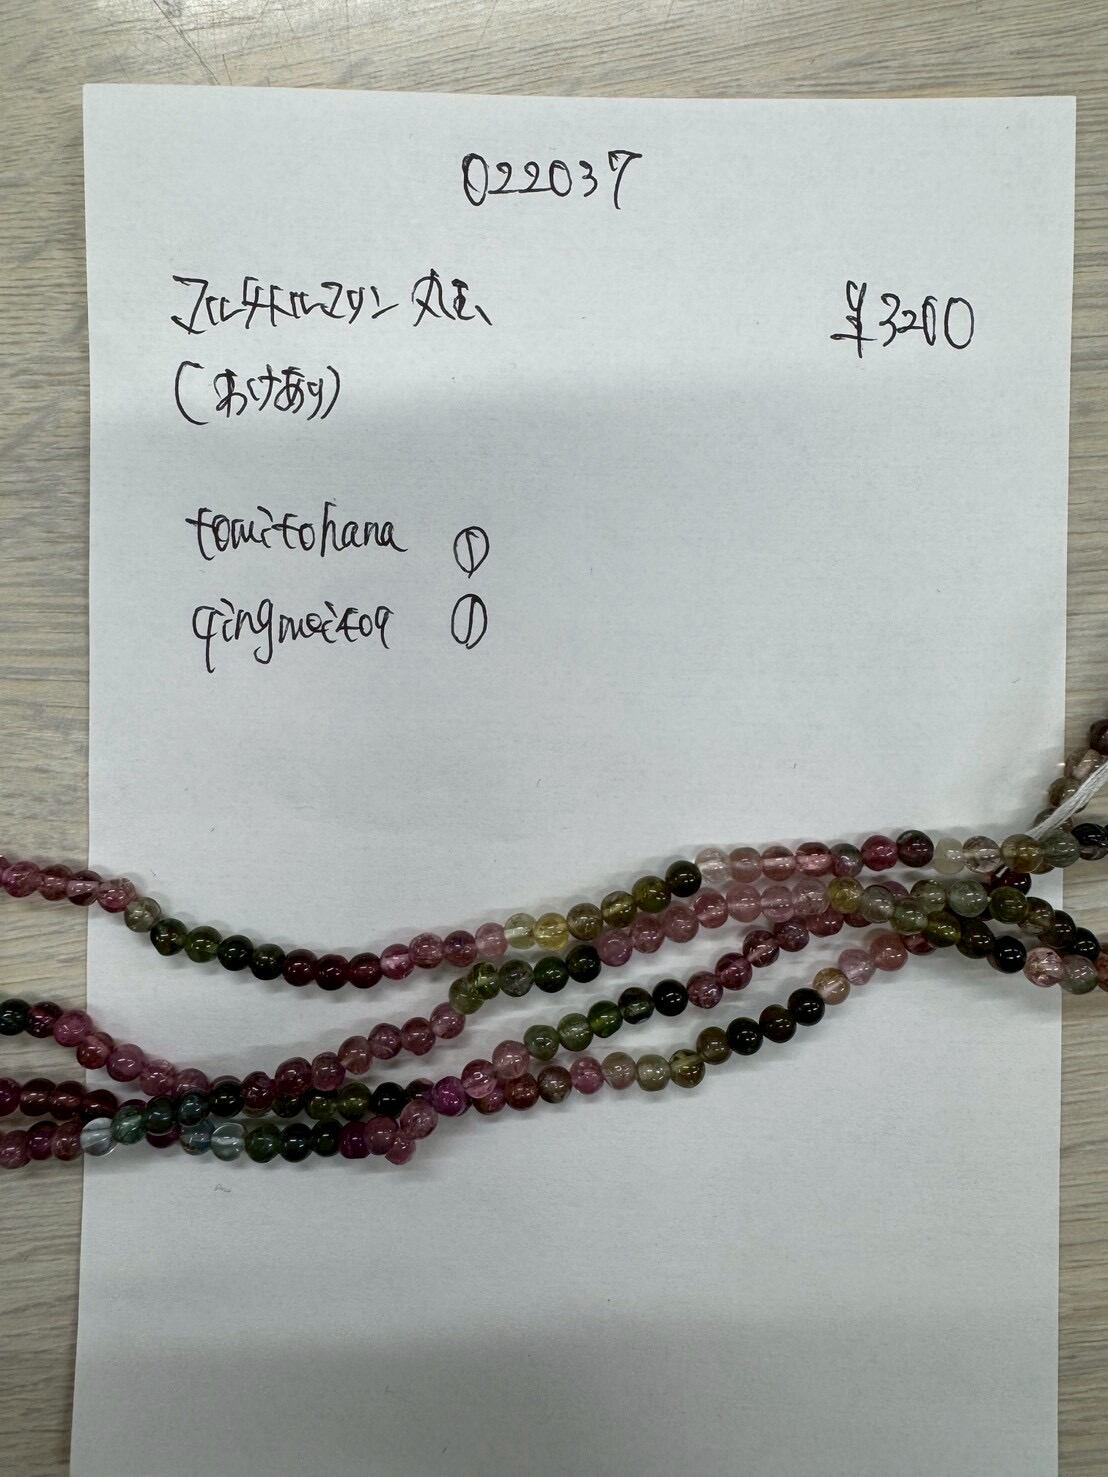 022037
マルチトルマリン 丸玉 ¥3200
(わけあり)
tomitohana ①
qingmeitoq ①